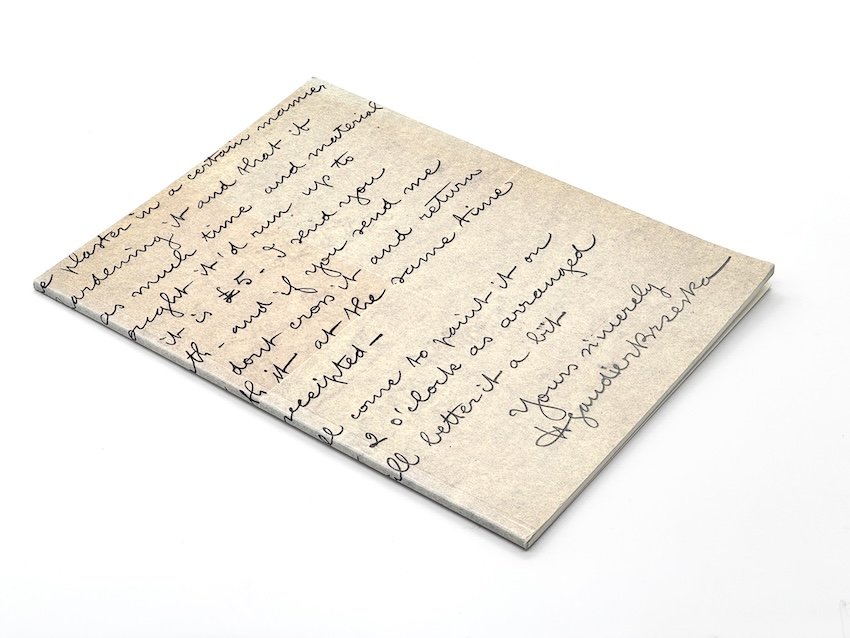 e plaster in a certain manner
ardening it and that it
as much time and material
ought it'd run up to
it is £5 - I send you
th - and if you send me
dont cross it and return
th it at the same time
receipted -
ll come to paint it on
2 o'clock as arranged
ill better it a bit
Yours sincerely
HGaudierBrzeska